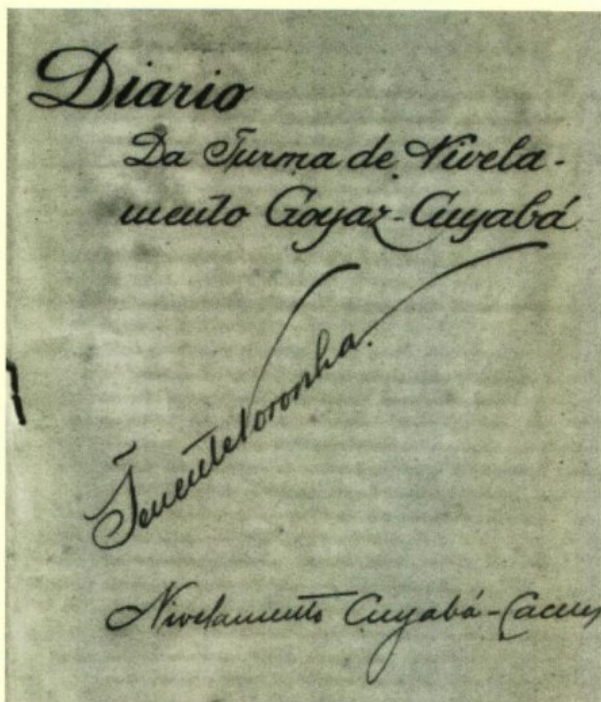 Diario
Da Turma de Nivela-
mento Goyaz-Cuyabá
Tenente Noronha.
Nivelamento Cuyabá-